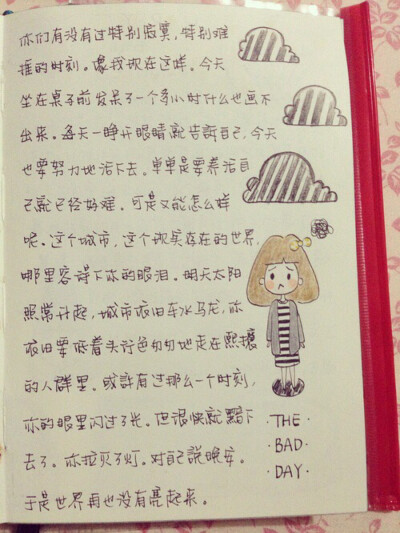 你们有没有过特别寂寞,特别难
捱的时刻。像我现在这样。今天
坐在桌子前发呆了一个多小时什么也画不
出来。每天一睁开眼睛就告诉自己,今天
也要努力地活下去。单单是要养活自
己就已经好难。可是又能怎么样
呢。这个城市,这个现实存在的世界,
哪里容得下你的眼泪。明天太阳
照常升起,城市依旧车水马龙,你
依旧要低着头行色匆匆地走在熙攘
的人群里。或许有过那么一个时刻,
你的眼里闪过了光。但很快就黯下
去了。你拉灭了灯。对自己说晚安。
于是世界再也没有亮起来。
·THE·
·BAD·
·DAY·